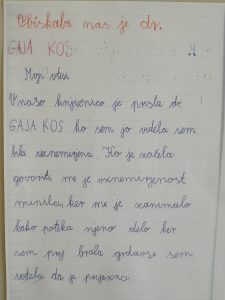 Obiskala nas je dr.
GAJA KOS
Moji vtisi
V našo knjižnico je prišla dr.
GAJA KOS ko sem jo videla sem
bila vznemirjena. Ko je začela
govoriti me je vznemirjenost
minila, ker me je zanimalo
kako poteka njeno delo ker
sem prej brala
sem
vedela da je prijazna.